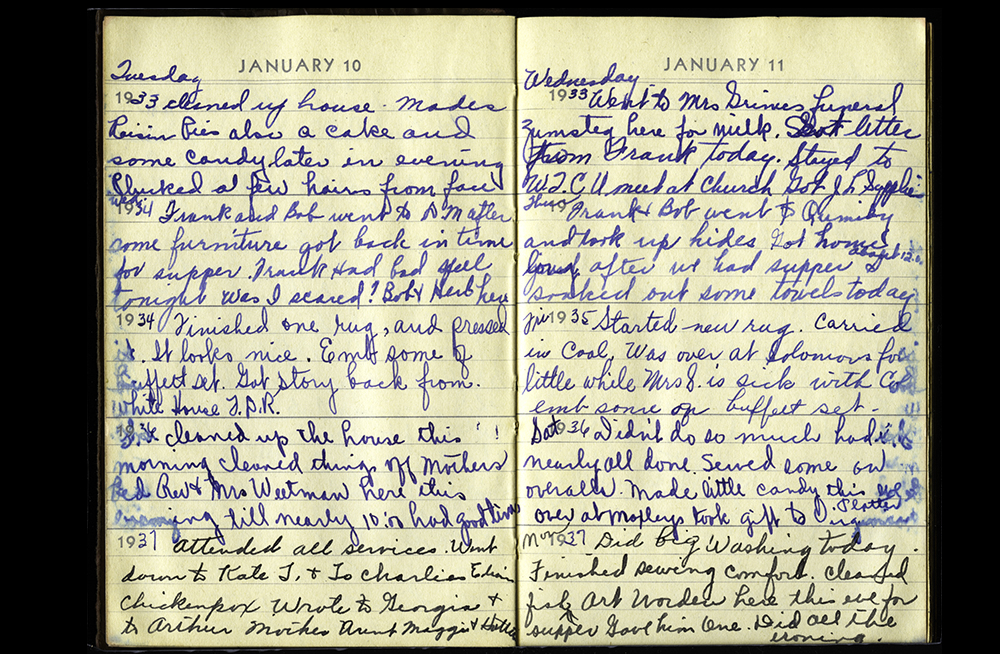 JANUARY 10
Tuesday
1933 cleaned up house. Made
Raisin Pies also a cake and
some candy later in evening
Plucked a few hairs from face
Wed.
1934 Frank and Bob went to D M after
some furniture got back in time
for supper. Frank Had bad spell
tonight was I scared! Bob & Herb here
1934 Finished one rug, and pressed
it. It looks nice. Emb some of
buffet set. Got story back from.
White House F.D.R.
1936 cleaned up the house this
morning cleaned things off Mothers
bed Rev & Mrs Weetman here this
till nearly 10:00 had good time
1937 Attended all services. Went
down to Kate J. & To Charlies Edwin
Chickenpox Wrote to Georgia &
to Arthur Mother Aunt Maggie &
JANUARY 11
Wednesday
1933 Went to Mrs Grimes funeral
Zumsteg here for milk. Got letter
from Frank today. Stayed to
W.T.C.U meet at Church Got J L Supplies
Thur
19 Frank & Bob went to Quimby
and took up hides Got home
after we had supper &
soaked out some towels today
Fri 1935 Started new rug. Carried
in Coal. Was over at Solomons for
little while Mrs S. is sick with
emb some on buffett set.
Sat 1936 Didn't do so much had
nearly all done. Sewed some on
overalls. Made little candy this
over at Moxleys took gift to
Platter
Mon 1937 Did big Washing today.
Finished sewing comfort. Cleaned
fish Art Worden here this eve for
supper Gave him One. Did all the
ironing.